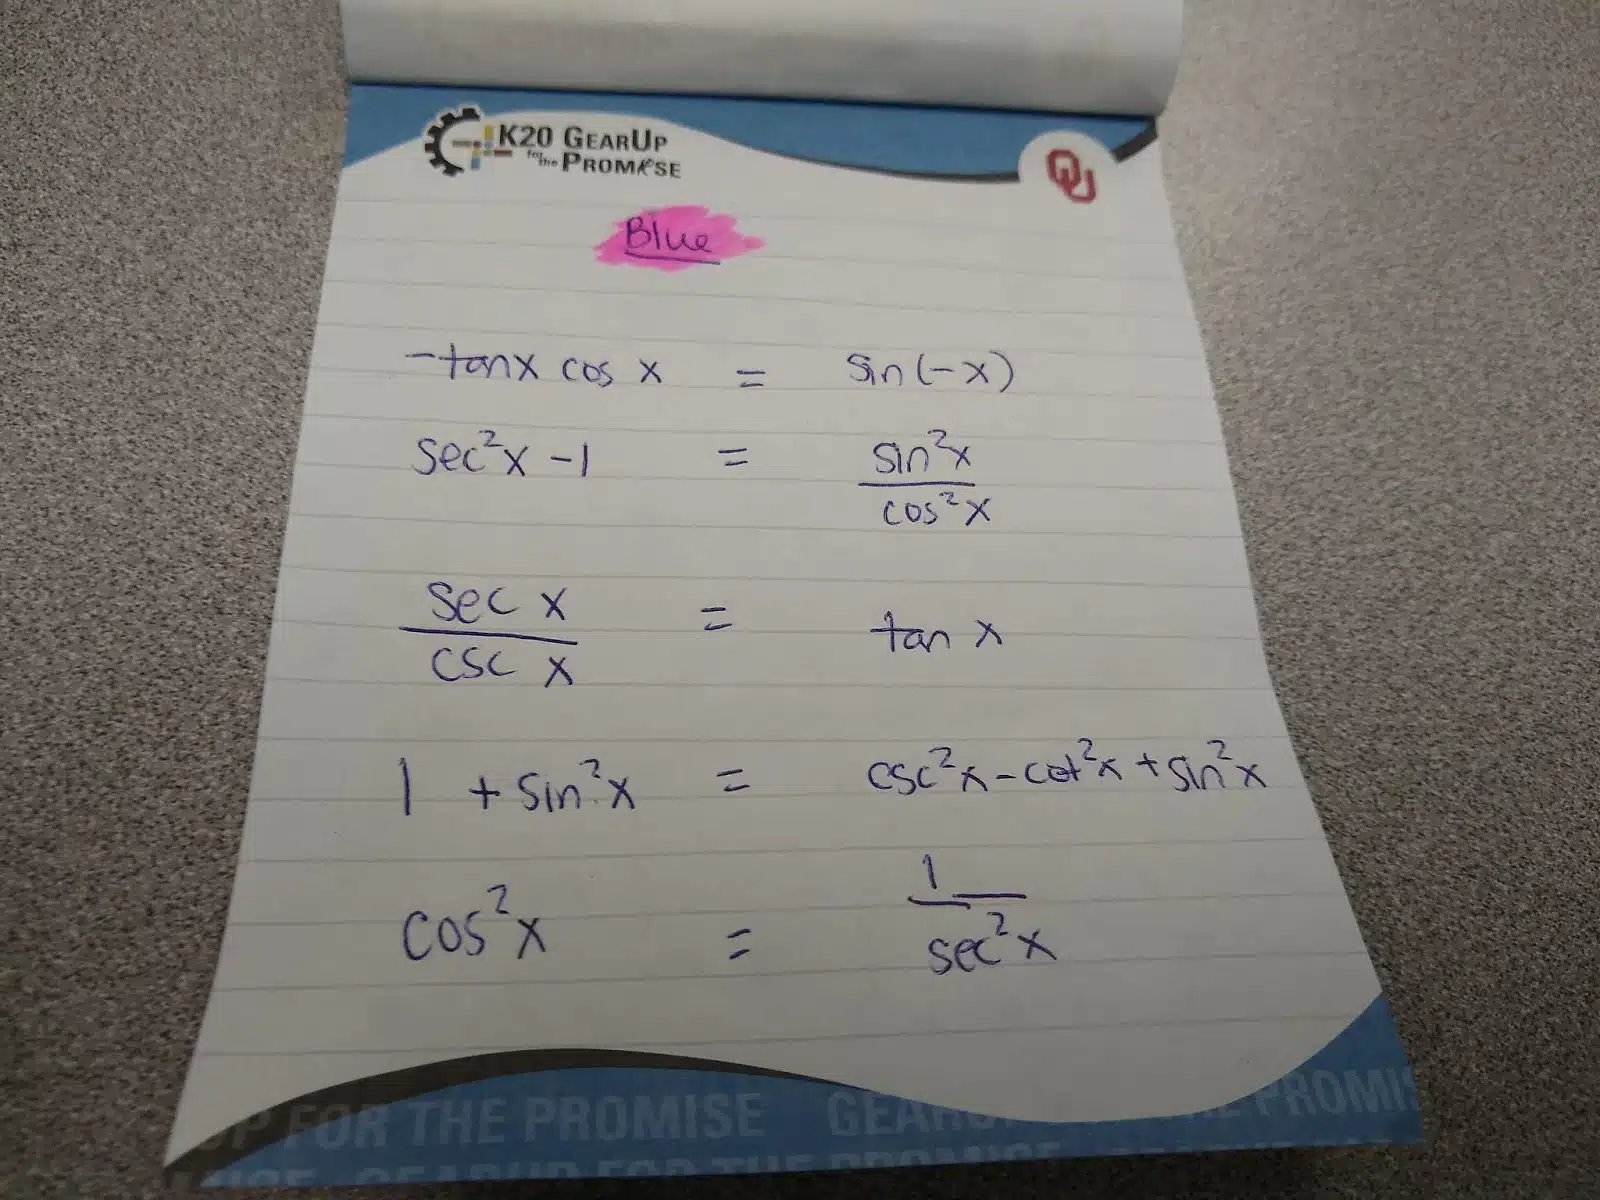 K20 GEARUP
for the PROMISE
OU
Blue
-tanx cos x = sin(-x)
sec²x -1 = sin²x / cos²x
sec x / csc x = tan x
1 + sin²x = csc²x - cot²x + sin²x
cos²x = 1 / sec²x
UP FOR THE PROMISE GEARU PROMIS